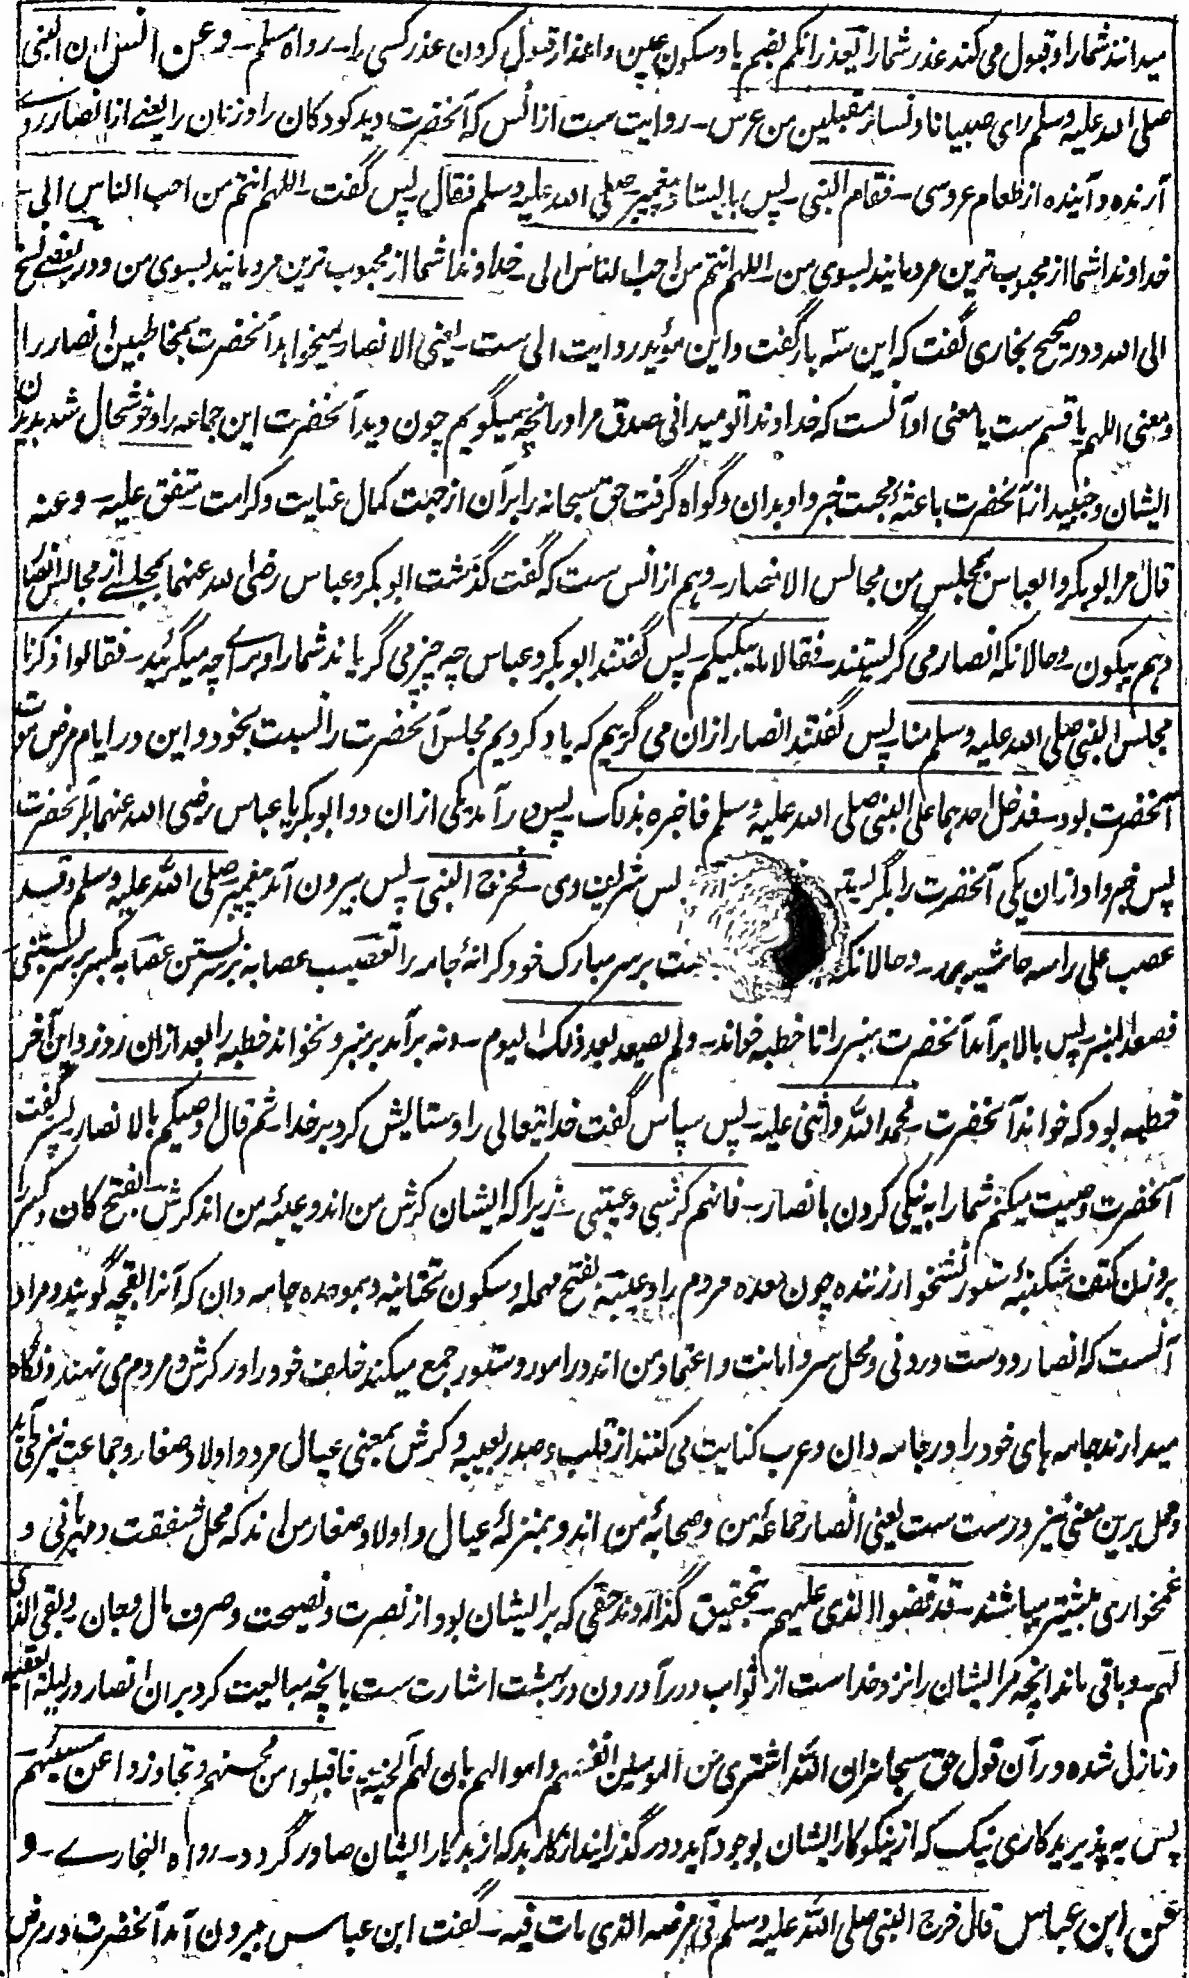 میدانند شما را و قبول می کند عذر شما را یعذرانکم بضم یا و سکون عین و اعذار قبول کردن عذر کسی را۔ رواه مسلم۔ و عن انس ان النبی
صلی الله علیه وسلم رای صبیانا و نساء مقبلین من عرس۔ روایت ست از انس که آنحضرت دید کودکان را و زنان را یعنے از انصار رو
آرنده و آینده از طعام عروسی۔ فقام النبی۔ پس بایستاد پیغمبر صلی الله علیه وسلم فقال پس گفت۔ اللهم انتم من احب الناس الی۔
خداوندا شما از محبوب ترین مردمانید بسوی من۔ اللهم انتم من احب الناس الی۔ خداوندا شما از محبوب ترین مردمانید بسوی من و در بعضے نسخ
الی الله و در صحیح بخاری گفت که این سه بار گفت و این مؤید روایت الی ست۔ یعنی الانصار۔ میخواهد آنحضرت بمخاطبین انصار را
و معنی اللهم یا قسم ست یا معنی او آنست که خداوندا تو میدانی صدق مرا در آنچه میگویم چون دید آنحضرت این جماعه را و خوشحال شد بدیدن
ایشان و جنبید از آنحضرت باعثۀ محبت خبر داد بدان و گواه گرفت حق سبحانه را بر آن از جهت کمال عنایت و کرامت۔ متفق علیه۔ و عنه
قال مر ابو بکر و العباس بمجلس من مجالس الانصار۔ و هم از انس ست که گفت گذشت ابو بکر و عباس رضی الله عنهما بمجلسے از مجالس انصار
و هم یبکون۔ و حالانکه انصار می گریستند۔ فقالا ما یبکیکم۔ پس گفتند ابو بکر و عباس چه چیز می گریاند شما را و براے چه میگرئید۔ فقالوا ذکرنا
مجلس النبی صلی الله علیه وسلم منا۔ پس گفتند انصار ازان می گرییم که یاد کردیم مجلس آنحضرت را نسبت بخود و این در ایام مرض موت
آنحضرت بود۔ فدخل احدهما علی النبی صلی الله علیه وسلم فاخبره بذلک۔ پس در آمد یکی ازان دو ابو بکر یا عباس رضی الله عنهما بر آنحضرت
پس خبر داد ازان یکی آنحضرت را بگریه لس شریف وی۔ فخرج النبی۔ پس بیرون آمد پیغمبر صلی الله علیه وسلم و قد
عصب علی راسه حاشیة برد۔ و حالانکه بست بر سر مبارک خود کرانۀ جامه را تعصیب عصابه بر سر بستن عصابه بکسر سربستنی
فصعد المنبر۔ پس بالا بر آمد آنحضرت منبر را تا خطبه خواند۔ و لم یصعد بعد ذلک الیوم۔ و نه بر آمد بر منبر و نخواند خطبه را بعد ازان روز و این آخر
خطبه بود که خواند آنحضرت۔ فحمد الله و اثنی علیه۔ پس سپاس گفت خدایتعالی را و ستایش کرد بر خدا ثم قال اوصیکم بالانصار۔ پستر گفت
آنحضرت وصیت میکنم شما را به نیکی کردن بانصار۔ فانهم کرشی و عیبتی۔ زیرا که ایشان کرش من اند و عیبۀ من اند کرش بفتح کاف و کسر را
بر وزن کتف شکنبۀ ستور نشخوار زننده چون معده مردم را و عیبة بفتح مهمله و سکون تحتانیه و بموحده جامه دان که آنرا بقچه گویند و مراد
آنست که انصار دوست درونی و محل سر و امانت و اعتماد من اند در امور و ستور جمع میکند خلیف خود را در کرش و مردم می نهند و نگاه
میدارند جامه های خود را در جامه دان و عرب کنایت می کنند از قلب و صدر بعیبه و کرش بمعنی عیال مرد و اولاد صغار و جماعت نیز می آید
و حمل برین معنی نیز درست ست یعنی انصار جماعۀ من و صحابۀ من اند و بمنزلۀ عیال و اولاد صغار من اند که محل شفقت و مهربانی و
غمخواری بیشتر میباشند۔ قد قضوا الذی علیهم۔ بتحقیق گذاردند حقی که بر ایشان بود از نصرت و نصیحت و صرف مال و جان۔ و بقی الذی
لهم۔ و باقی ماند آنچه مر ایشان را نزد خداست از ثواب در آوردن در بهشت اشارت ست بآنچه مبایعت کرد بر آن انصار در لیلة العقبه
و نازل شده در آن قول حق سبحانه ان الله اشتری من المومنین انفسهم و اموالهم بان لهم الجنة۔ فاقبلوا من محسنهم و تجاوزوا عن مسیئهم
پس به پذیرید کاری نیک که از نیکوکار ایشان بوجود آید و در گذرانید از کار بد که از بدکار ایشان صادر گردد۔ رواه البخارے۔ و
عن ابن عباس قال خرج النبی صلی الله علیه وسلم فی مرضه الذی مات فیه۔ گفت ابن عباس بیرون آمد آنحضرت در مرض